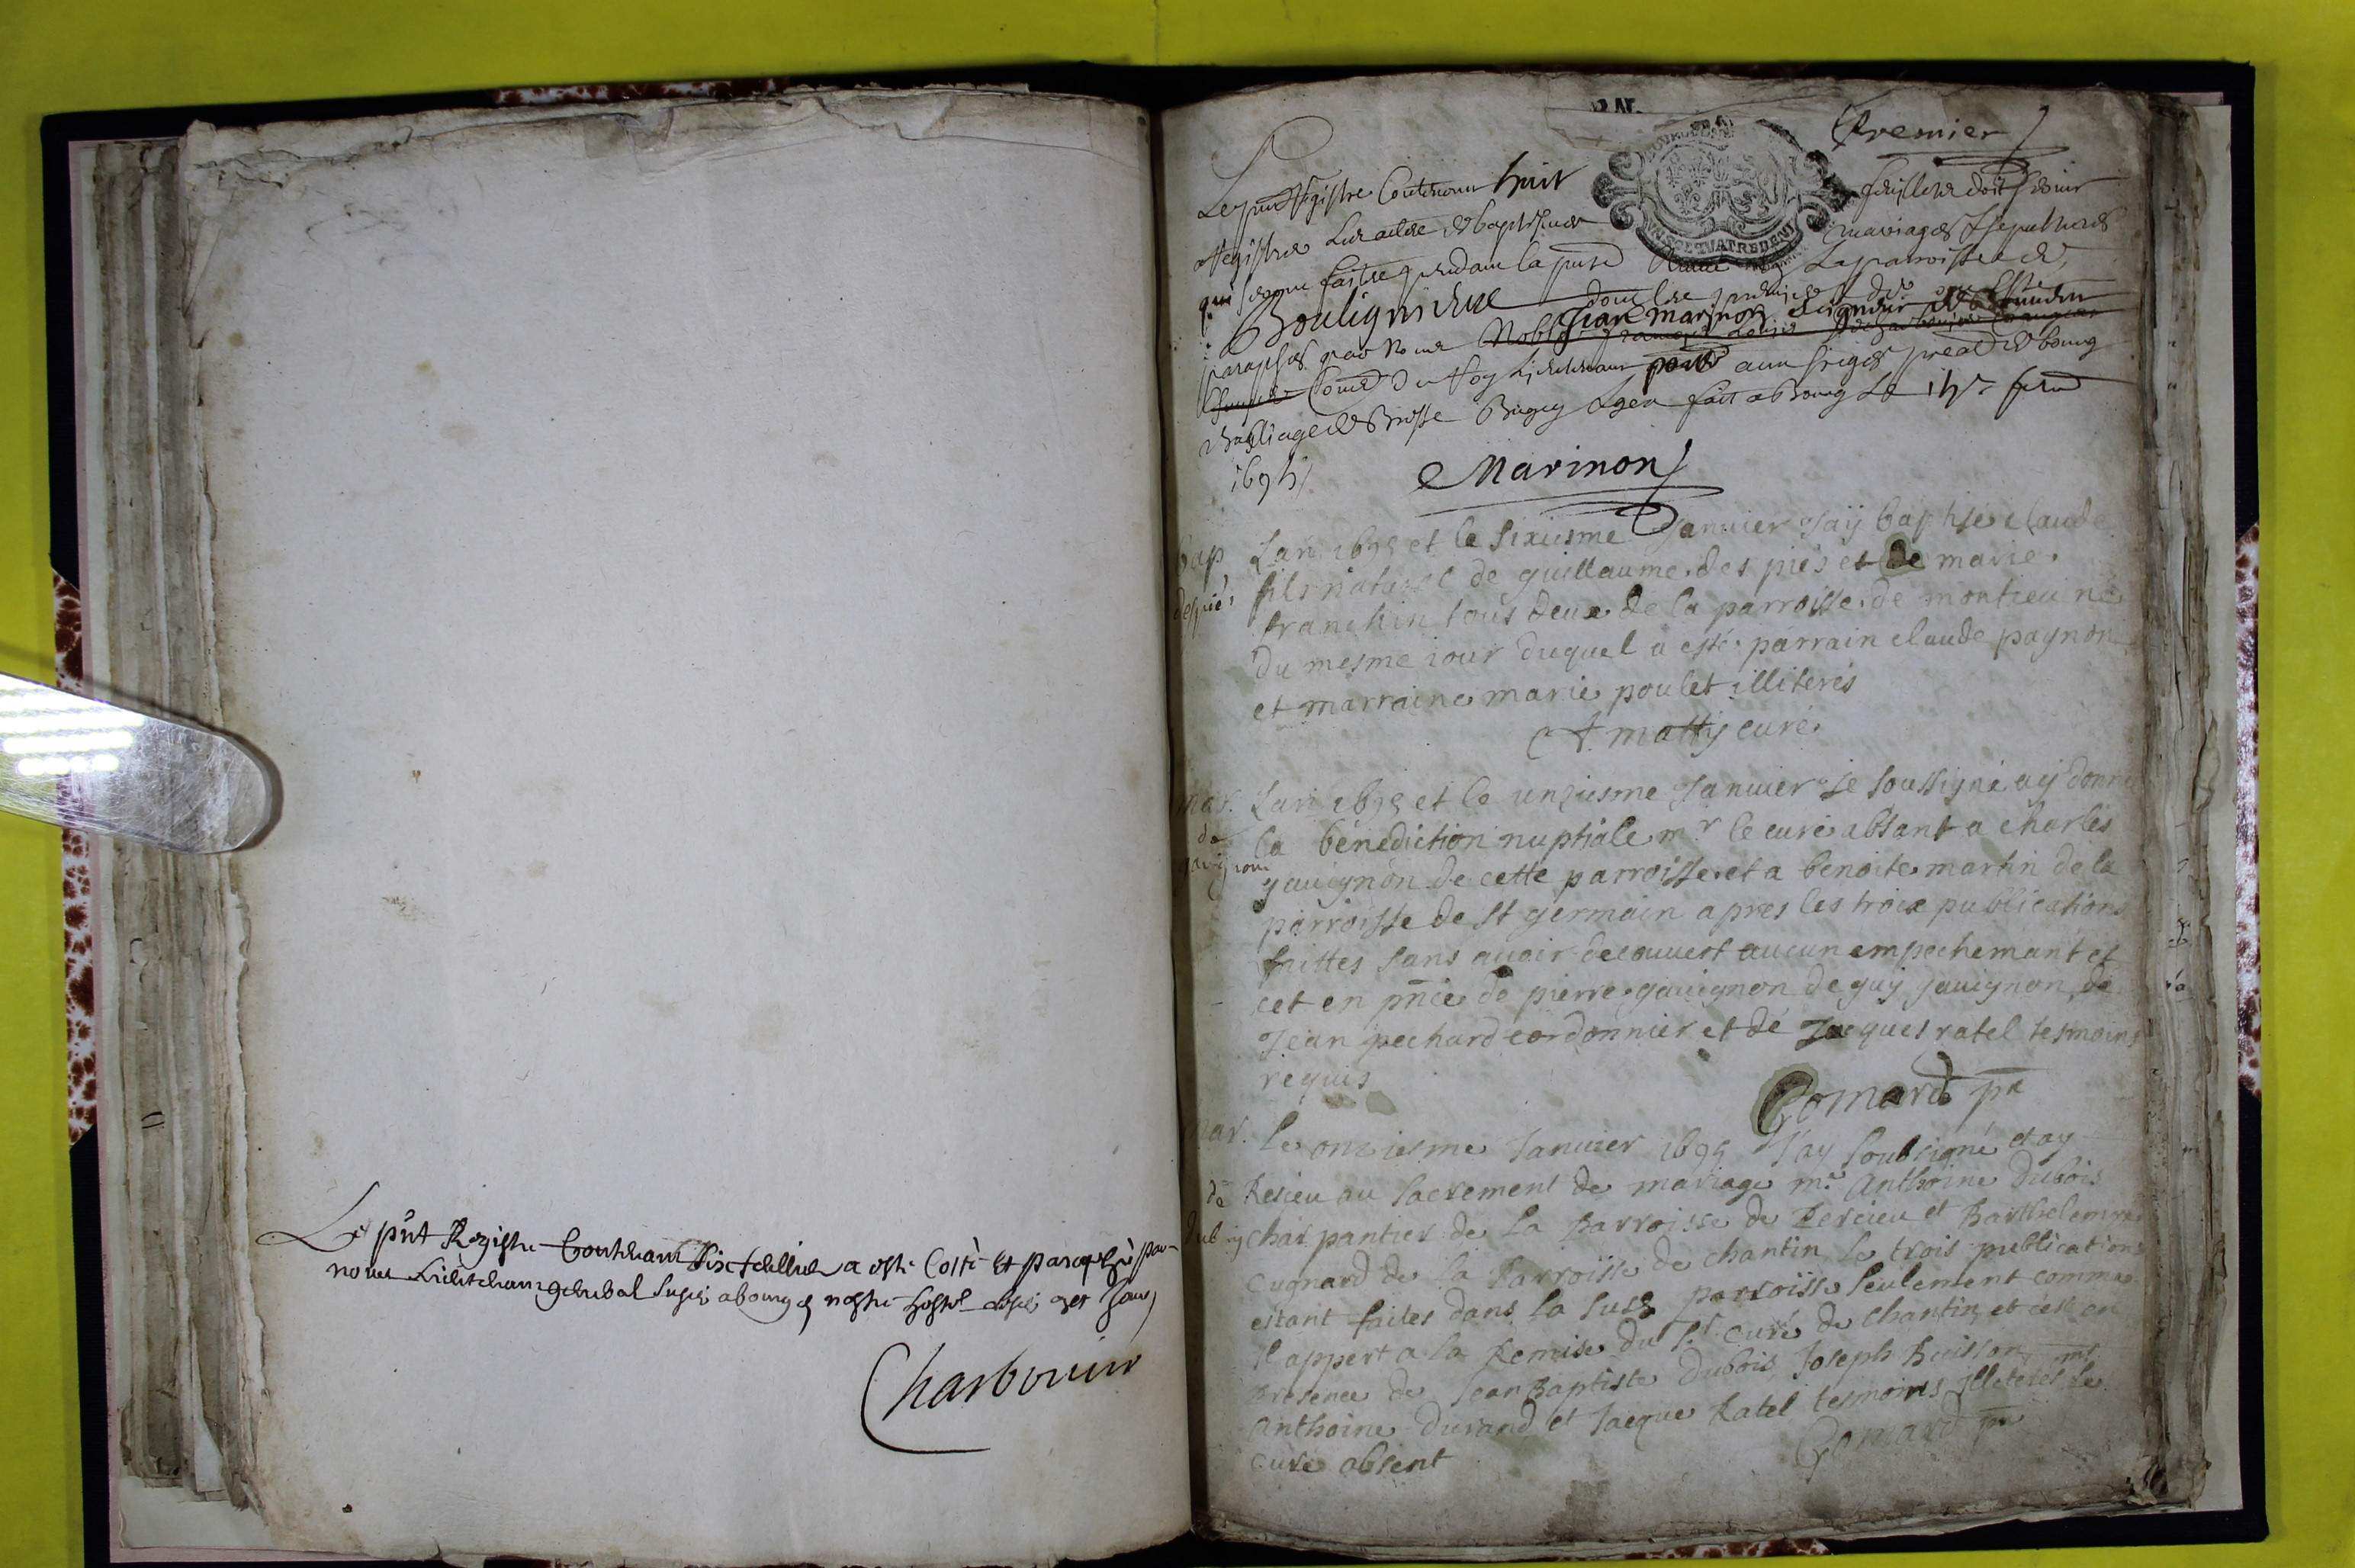 Le pnt Registre Contenant dix feuillets a esté Cotté Et paraphé par
nous Lieutenant general susd a bourg
Charbonnier
Premier
Le pnt Registre Contenant huit feuillets doit servir
a Registrer Les actes de baptesmes mariages sepultures
qui seront faittes pendant la pnte année La parroisse de
Boulignieux dont les
paraphés par Nous Noble Jean Marinon Seigneur
Cons du Roy Lieutenant au siege pread de bourg
Bailliage de Bresse Bugey Gex fait a Bourg Le
169
Marinon
bap Lan 1695 et le sixiesme Januier Jaÿ baptisé claude
despiés fils naturel de guillaume des piés et de marie
franchin tous deux de la parroisse de montieu né
du mesme iour duquel a esté parrain claude pagnon
et marraine marie poulet illiterés
matty curé
mar. Lan 1695 et le unziesme Januier Je soussigné aÿ donné
de la bénédiction nuptiale mr le curé absant a charles
gauignon gauignon de cette parroisse et a benoite martin de la
parroisse de st germain apres les troix publications
faittes sans auoir decouuert aucun empechemant et
cet en pnce de pierre gauignon de guÿ gauignon de
Jean pechard cordonnier et de Jacques ratel tesmoins
requis
Gomard pre
mar. Le onziesme Januier 1695 J'ay soubsigné et ay
de Resceu au sacrement de mariage mr Anthoine Dubois
charpantier de la Parroisse de Percieu et Barthelemie
Cugnard de la Parroisse de chantin le trois publications
estant faites dans la susd parroisse seulement comme
Il appert a la Remise du Sr curé de Chantin et cest en
Presence de Jean Baptiste Dubois Joseph Buisson mr
Anthoine Durand et Jacque Ratel tesmoins Illeterés le
curé absent Gomard pre